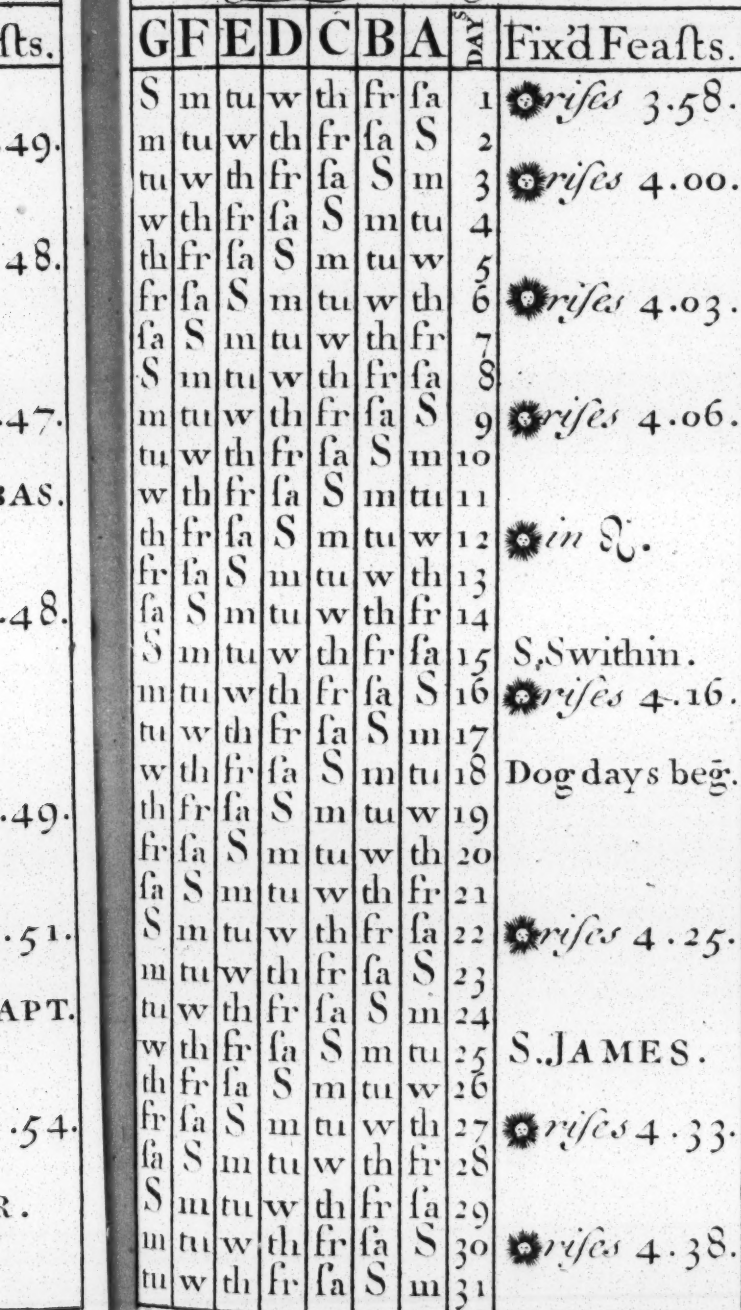 ſts.
49.
48.
.47.
BAS.
.48.
.49.
.51.
APT.
.54.
R.
G F E D C B A DAYS Fix'd Feaſts.
S m tu w th fr ſa 1 riſes 3.58.
m tu w th fr ſa S 2
tu w th fr ſa S m 3 riſes 4.00.
w th fr ſa S m tu 4
th fr ſa S m tu w 5
fr ſa S m tu w th 6 riſes 4.03.
ſa S m tu w th fr 7
S m tu w th fr ſa 8
m tu w th fr ſa S 9 riſes 4.06.
tu w th fr ſa S m 10
w th fr ſa S m tu 11
th fr ſa S m tu w 12 in ♌.
fr ſa S m tu w th 13
ſa S m tu w th fr 14
S m tu w th fr ſa 15 S. Swithin.
m tu w th fr ſa S 16 riſes 4.16.
tu w th fr ſa S m 17
w th fr ſa S m tu 18 Dog days beḡ.
th fr ſa S m tu w 19
fr ſa S m tu w th 20
ſa S m tu w th fr 21
S m tu w th fr ſa 22 riſes 4.25.
m tu w th fr ſa S 23
tu w th fr ſa S m 24
w th fr ſa S m tu 25 S. JAMES.
th fr ſa S m tu w 26
fr ſa S m tu w th 27 riſes 4.33.
ſa S m tu w th fr 28
S m tu w th fr ſa 29
m tu w th fr ſa S 30 riſes 4.38.
tu w th fr ſa S m 31